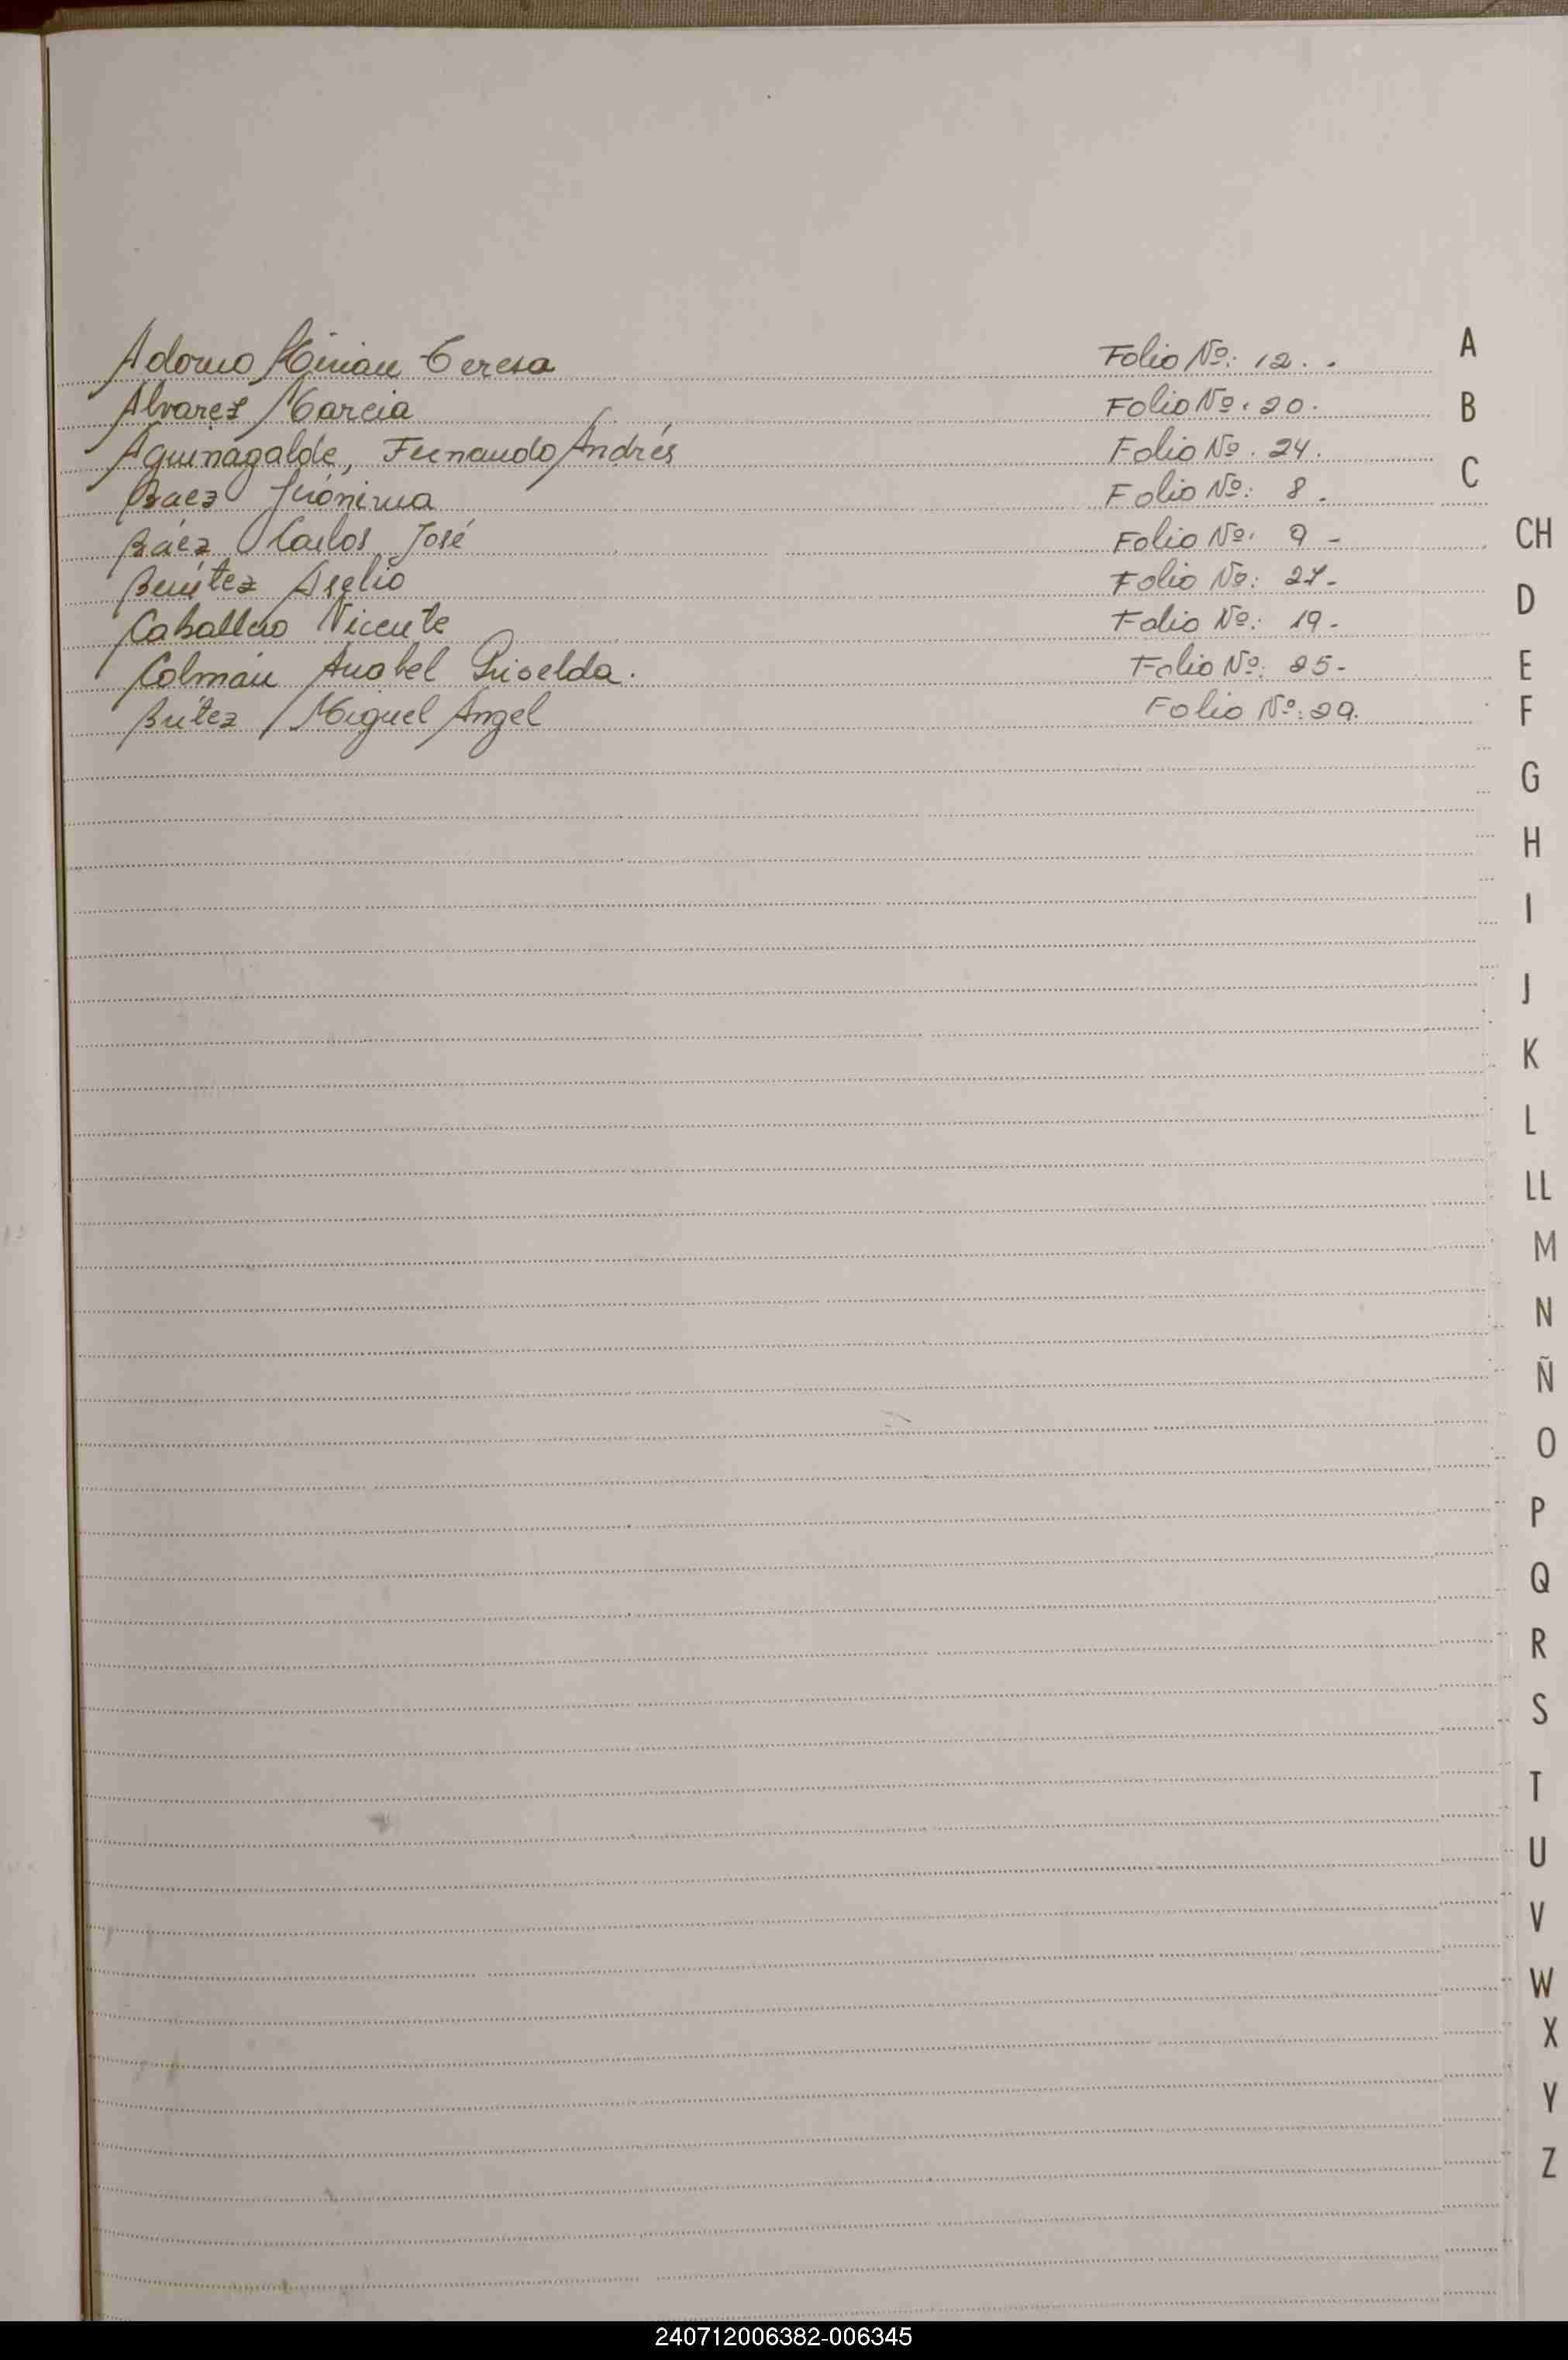 Adorno Mirian Teresa Folio Nº: 12.
Alvarez Marcia Folio Nº: 20.
Aguinagalde, Fernando Andrés Folio Nº. 24.
Baez Jerónima Folio Nº: 8.
Báez Carlos José Folio Nº: 9-
Benítez Folio Nº: 27-
Caballero Vicente Folio Nº: 19-
Colmán Anabel Griselda. Folio Nº: 25-
Brítez Miguel Angel Folio Nº: 29.
A
B
C
CH
D
E
F
G
H
I
J
K
L
LL
M
N
Ñ
O
P
Q
R
S
T
U
V
W
X
Y
Z
240712006382-006345